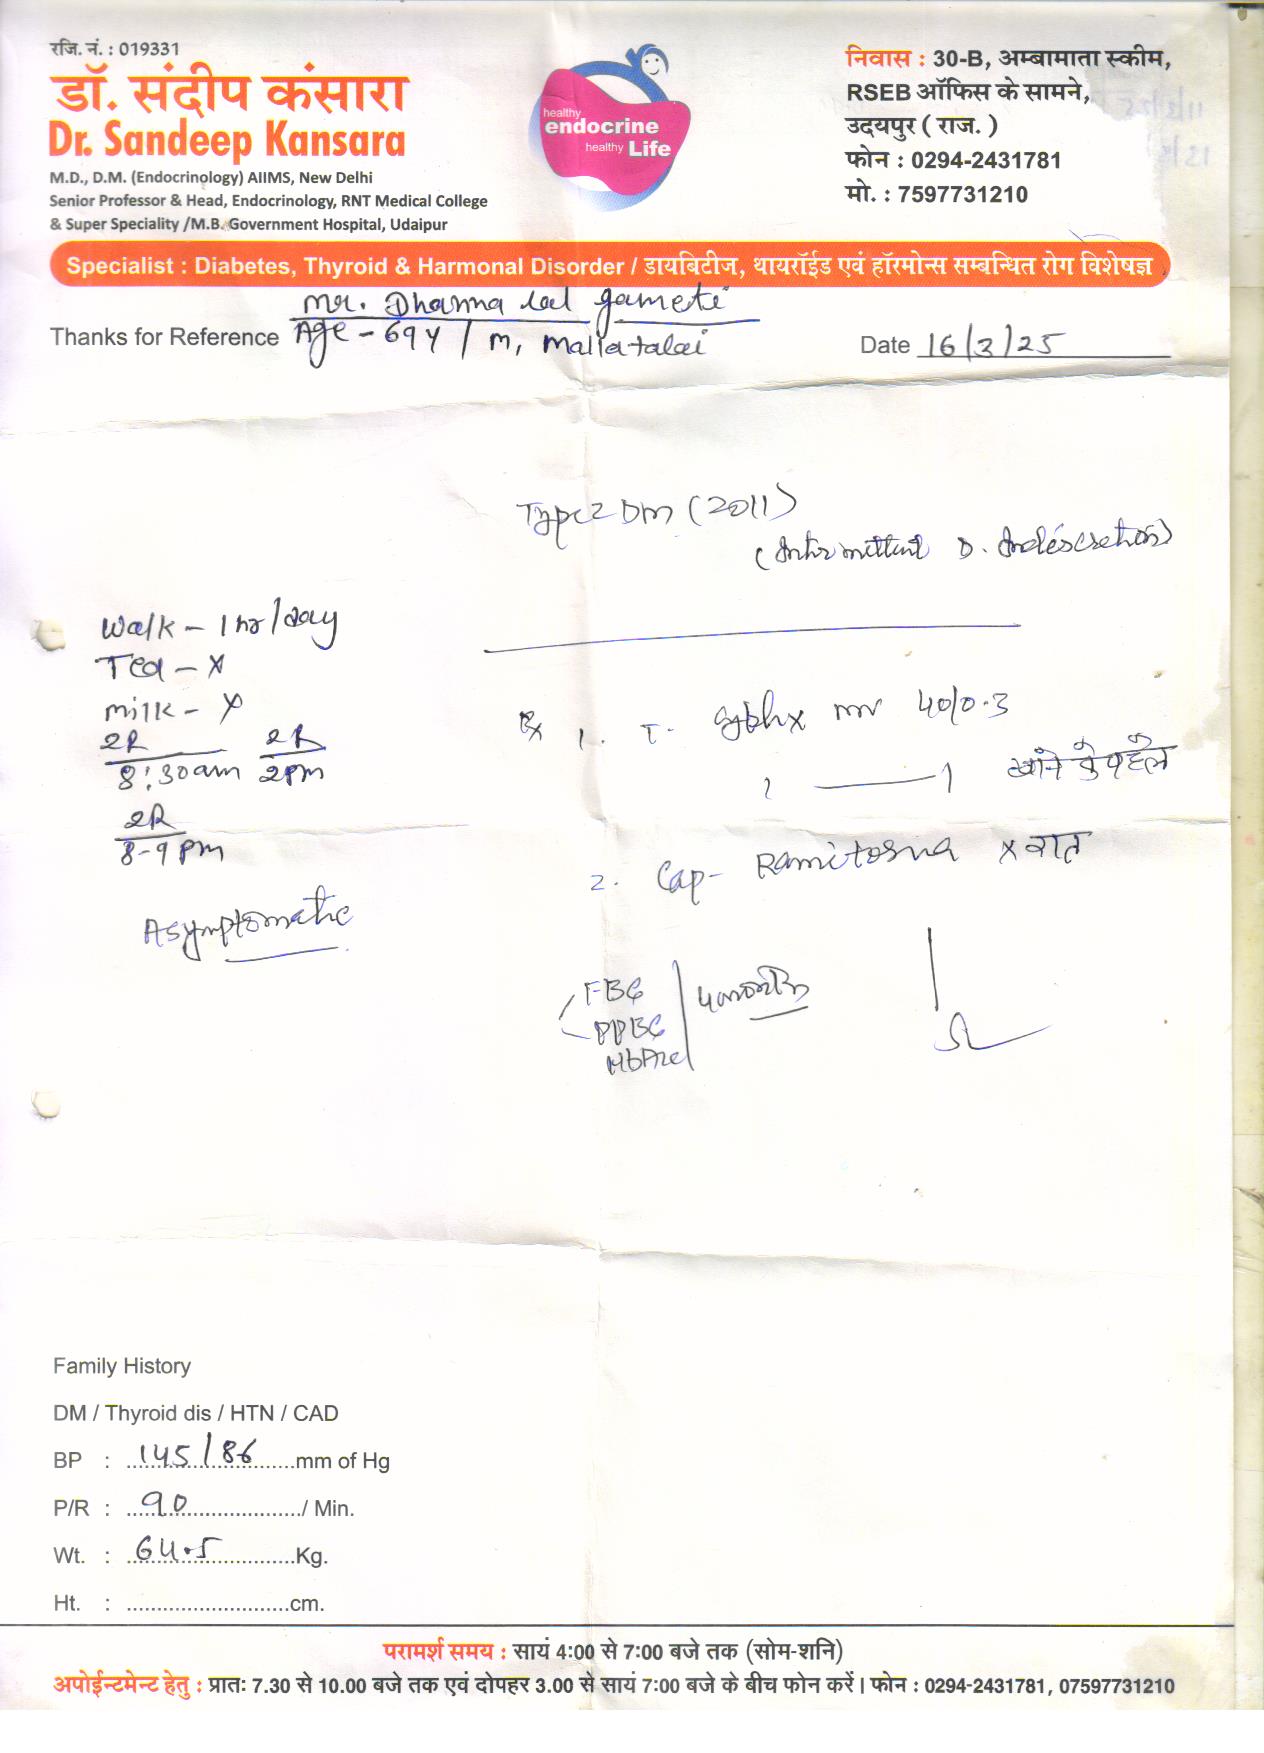 रजि. नं. : 019331
डॉ. संदीप कंसारा
Dr. Sandeep Kansara
M.D., D.M. (Endocrinology) AIIMS, New Delhi
Senior Professor & Head, Endocrinology, RNT Medical College
& Super Speciality /M.B. Government Hospital, Udaipur
healthy
endocrine
healthy Life
निवास : 30-B, अम्बामाता स्कीम,
RSEB ऑफिस के सामने,
उदयपुर ( राज. )
फोन : 0294-2431781
मो. : 7597731210
Specialist : Diabetes, Thyroid & Harmonal Disorder / डायबिटीज, थायरॉईड एवं हॉरमोन्स सम्बन्धित रोग विशेषज्ञ
Mr. Dhanna lal gameti
Thanks for Reference Age - 69 Y / M, Mallatalai
Date 16/3/25
Type 2 DM (2011)
(Intermittent D. Indiscretion)
Walk - 1 hr/day
Tea - x
milk - x
2R 2R
8:30am 2pm
2R
8-9 pm
Asymptomatic
Rx 1. T. mv 40/0.3
1 — 1 खाने के पहले
2. Cap- x रात
FBG
PPBG
HbA1c
4 months
Family History
DM / Thyroid dis / HTN / CAD
BP : 145/86 mm of Hg
P/R : 90 / Min.
Wt. : 64.5 Kg.
Ht. : cm.
परामर्श समय : सायं 4:00 से 7:00 बजे तक (सोम-शनि)
अपोईन्टमेन्ट हेतु : प्रातः 7.30 से 10.00 बजे तक एवं दोपहर 3.00 से सायं 7:00 बजे के बीच फोन करें। फोन : 0294-2431781, 07597731210